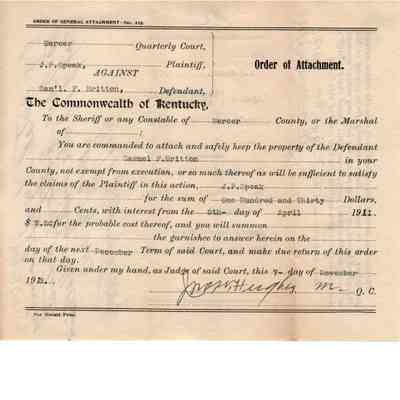 ORDER OF GENERAL ATTACHMENT
Mercer Quarterly Court,
J.P.Spenk, Plaintiff,
AGAINST
Sam'l. P. Britton, Defendant,
Order of Attachment.
The Commonwealth of Kentucky,
To the Sheriff or any Constable of Mercer County, or the Marshal
of ;
You are commanded to attach and safely keep the property of the Defendant
Samuel P.Britton in your
County, not exempt from execution, or so much thereof as will be sufficient to satisfy
the claims of the Plaintiff in this action, J.P.Spenk
for the sum of One Hundred and Thirty Dollars,
and Cents, with interest from the 8th- day of April 191
$ for the probable cost thereof, and you will summon
the garnishee to answer herein on the
day of the next December Term of said Court, and make due return of this order
on that day.
Given under my hand, as Judge of said Court, this 7- day of November
191
Jno W. Hughes Q. C.
Herald Print.